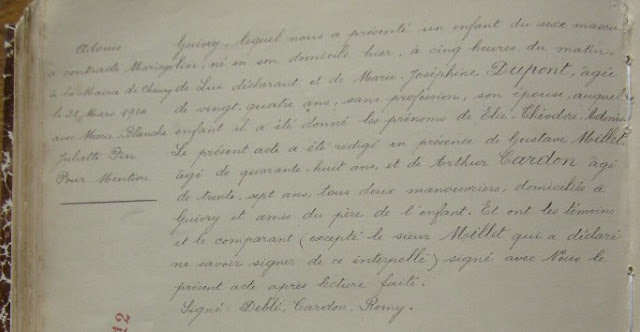 Adonis
a contracté Mariage
à la Mairie de Chauny
le 31 Mars 1924
avec Marie, Blanche
Juliette Pin
Pour Mention
Guivry, lequel nous a présenté un enfant du sexe mascu
lin, né en son domicile hier, à cinq heures du matin,
de Lui déclarant et de Marie Joséphine Dupont, âgée
de vingt-quatre ans, sans profession, son épouse, auquel
enfant il a été donné les prénoms de Elie, Théodore, Adonis.
Le présent acte a été rédigé en présence de Gustave Millet
âgé de quarante-huit ans, et de Arthur Cardon âgé
de trente-sept ans, tous deux manouvriers, domiciliés à
Guivry et amis du père de l'enfant. Et ont les témoins
et le comparant (excepté le sieur Millet qui a déclaré
ne savoir signer de ce interpellé) signé avec Nous le
présent acte après lecture faite.
Signé: Deblé, Cardon, Romy.
12